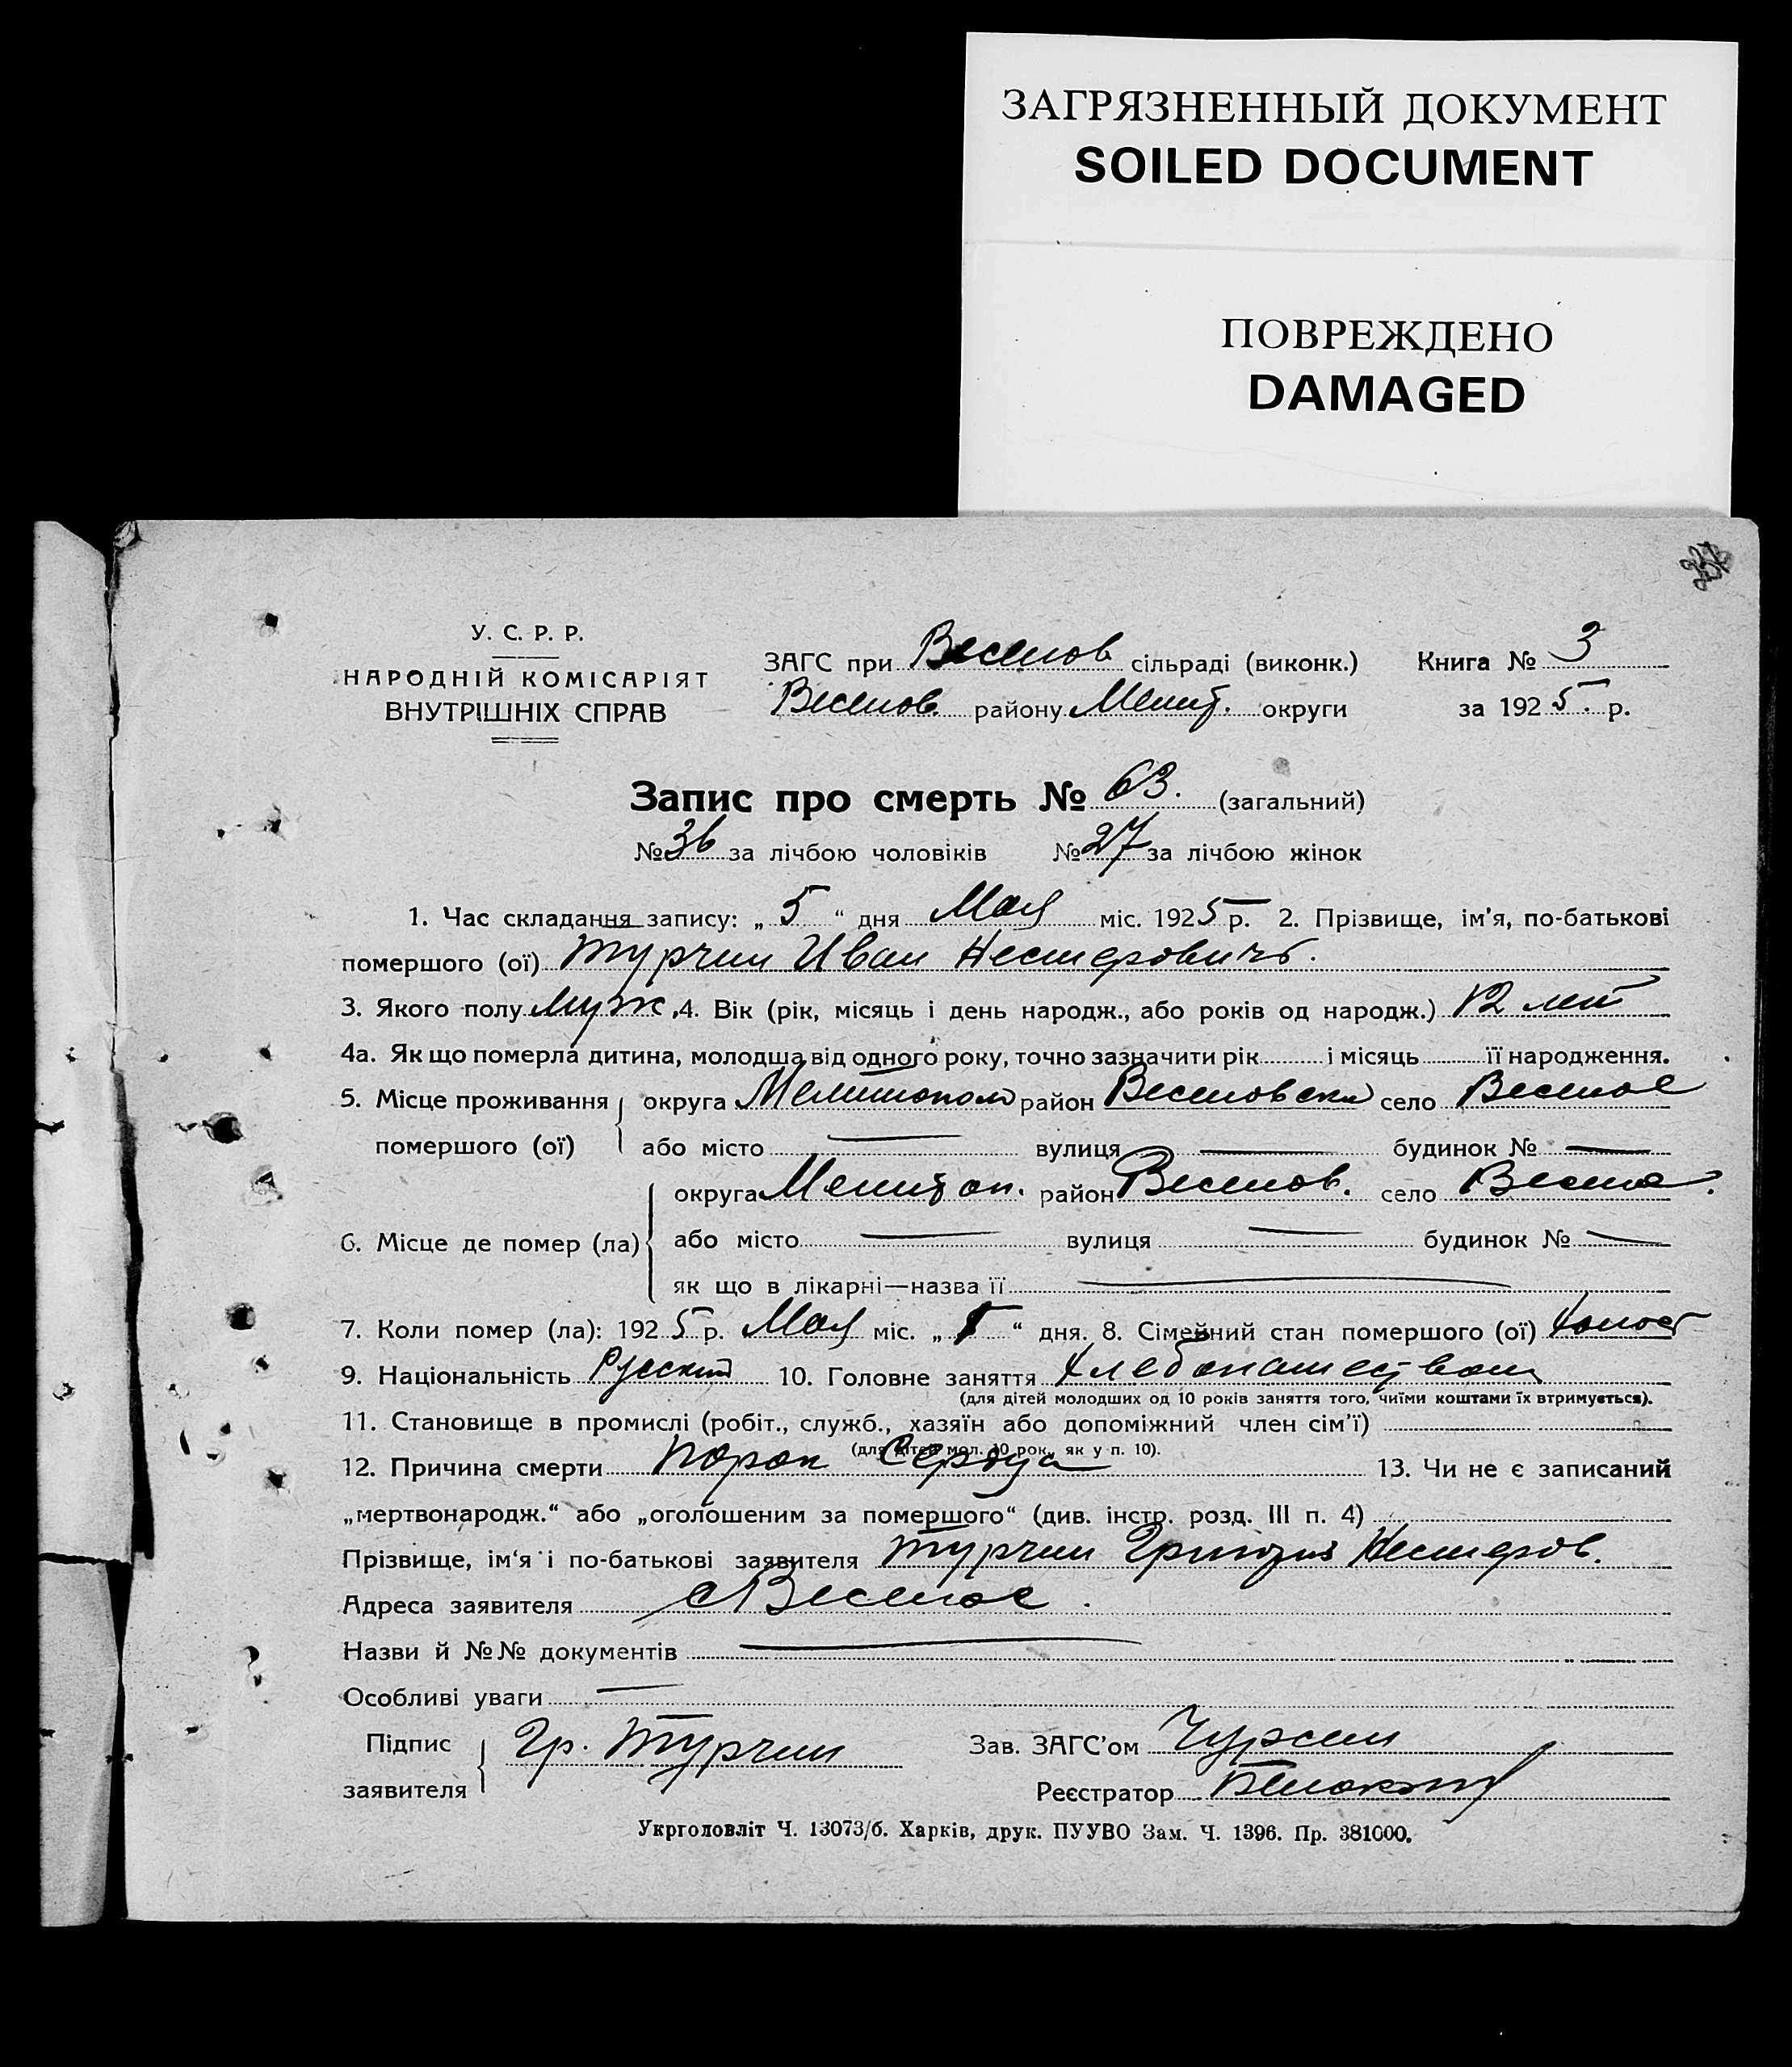 ЗАГРЯЗНЕННЫЙ ДОКУМЕНТ
SOILED DOCUMENT
ПОВРЕЖДЕНО
DAMAGED
У. С. Р. Р.
НАРОДНІЙ КОМІСАРІЯТ
ВНУТРІШНІХ СПРАВ
ЗАГС при Веселов сільраді (виконк.) Книга № 3
Веселов. району Мелит. округи за 1925 р.
Запис про смерть № 63. (загальний)
№ 36 за лічбою чоловіків № 27 за лічбою жінок
1. Час складання запису: „ 5 “ дня Мая міс. 1925 р. 2. Прізвище, ім’я, по-батькові
помершого (ої) Турчин Иван Нестерович.
3. Якого полу Муж. 4. Вік (рік, місяць і день народж., або років од народж.) 12 лет
4а. Як що померла дитина, молодша від одного року, точно зазначити рік і місяць її народження.
5. Місце проживання округа Мелитопол район Веселовски село Веселое
помершого (ої) або місто — вулиця — будинок № —
округа Мелитоп. район Веселов. село Весело.
6. Місце де помер (ла) або місто — вулиця — будинок № —
як що в лікарні—назва її —
7. Коли помер (ла): 1925 р. Мая міс. „ “ дня. 8. Сімейний стан помершого (ої) Холост
9. Національність Руский 10. Головне заняття Хлебопашество
(для дітей молодших од 10 років заняття того, чиїми коштами їх втримується).
11. Становище в промислі (робіт., служб., хазяїн або допоміжний член сім’ї)
(для дітей мол. 10 рок., як у п. 10).
12. Причина смерти Порок Сердца 13. Чи не є записаний
„мертвонародж.“ або „оголошеним за помершого“ (див. інстр. розд. III п. 4)
Прізвище, ім‘я і по-батькові заявителя Турчин Григорий Нестеров.
Адреса заявителя с Веселое.
Назви й №№ документів —
Особливі уваги —
Підпис заявителя Гр. Турчин Зав. ЗАГС’ом Чурсин
Реєстратор
Укрголовліт Ч. 13073/б. Харків, друк. ПУУВО Зам. Ч. 1396. Пр. 381000.